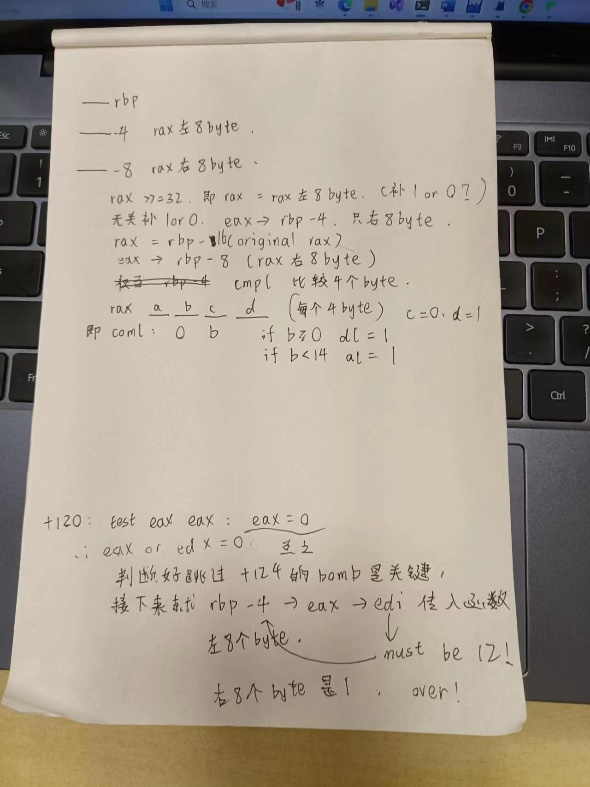 搜索
— rbp
— -4 rax 左 8 byte .
— -8 rax 右 8 byte .
rax >>=32. 即 rax = rax 左 8 byte. (补 1 or 0 ? )
无关补 1 or 0. eax → rbp-4. 只右 8 byte .
rax = rbp-16(original rax)
eax → rbp-8 (rax 右 8 byte)
rbp-4 cmpl 比较 4个 byte .
rax a b c d (每个 4 byte) c=0. d=1
即 coml : 0 b if b≥0 dl = 1
if b<14 al = 1
+120: test eax eax : eax = 0
∴ eax or edx=0.
判断好跳过 +124 的 bomb 是关键,
接下来 rbp-4 → eax → edi 传入函数
左 8个 byte .
must be 12!
右 8个 byte 是 1 , over!
Esc
!
1
F9
F10
)
0
P
>
.
?
/
:
;
Ctrl